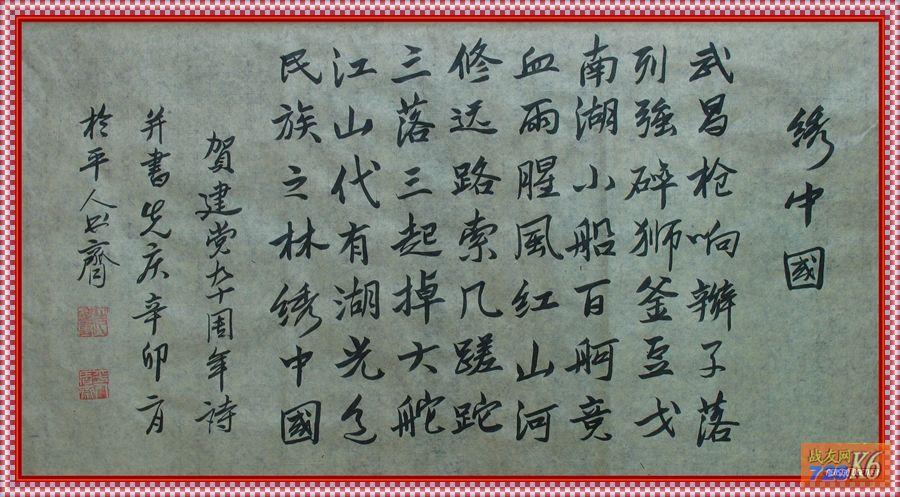 绣中國
武昌枪响辫子落
列强碎狮釜豆戈
南湖小船百舸竞
血雨腥风红山河
修远路索几蹉跎
三落三起掉大舵
江山代有湖光色
民族之林绣中國
贺建党九十周年诗
并书 先庆辛卯
於平人 斋
战友网
K6